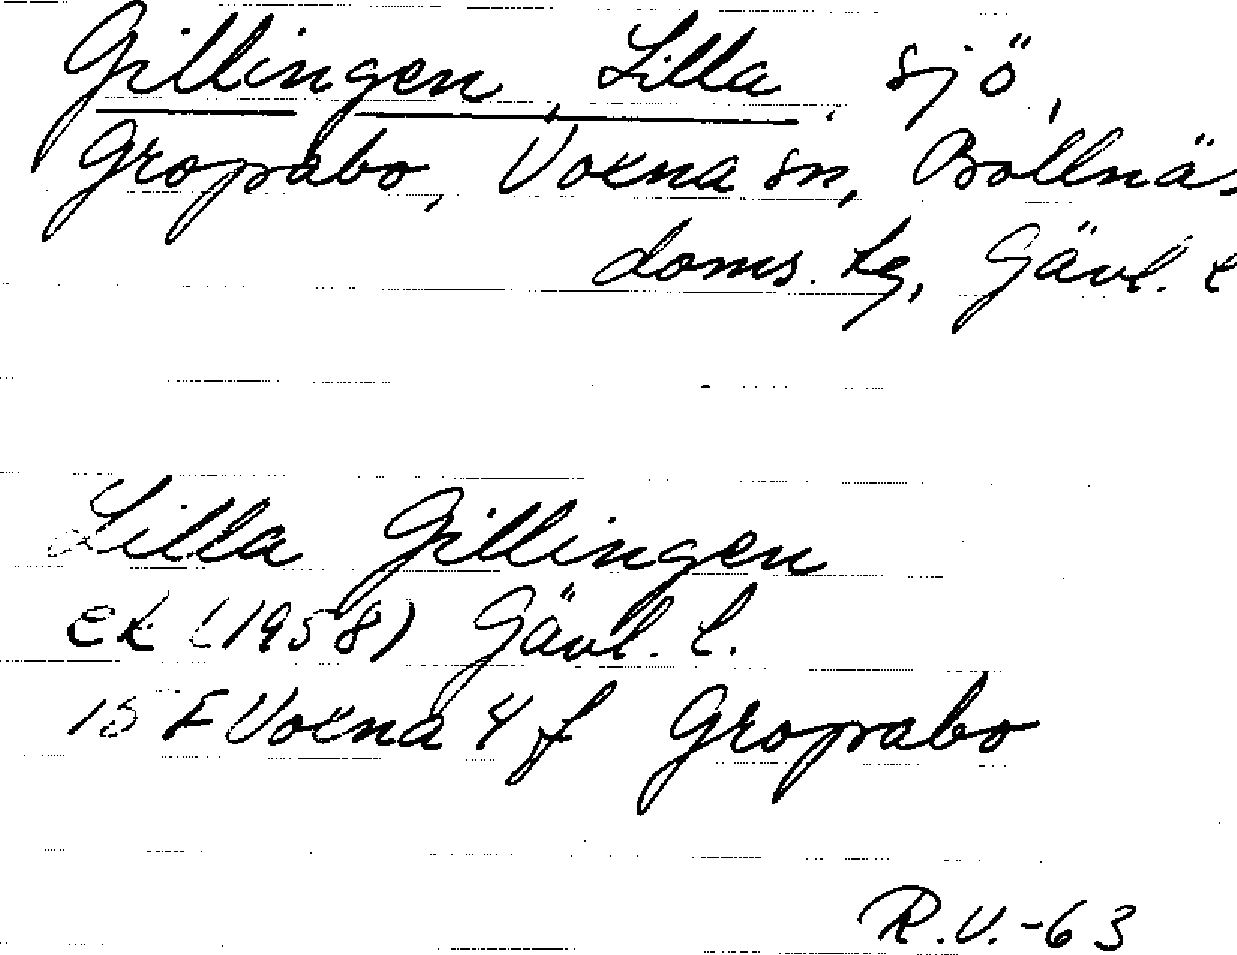 Gillingen, Lilla sjö,
Gropabo, Voxna sn, Bollnäs
doms. tg, Gävl. l
Lilla Gillingen
EK (1958) Gävl. l.
15 F Voxna 4 f Gropabo
R.V.-63